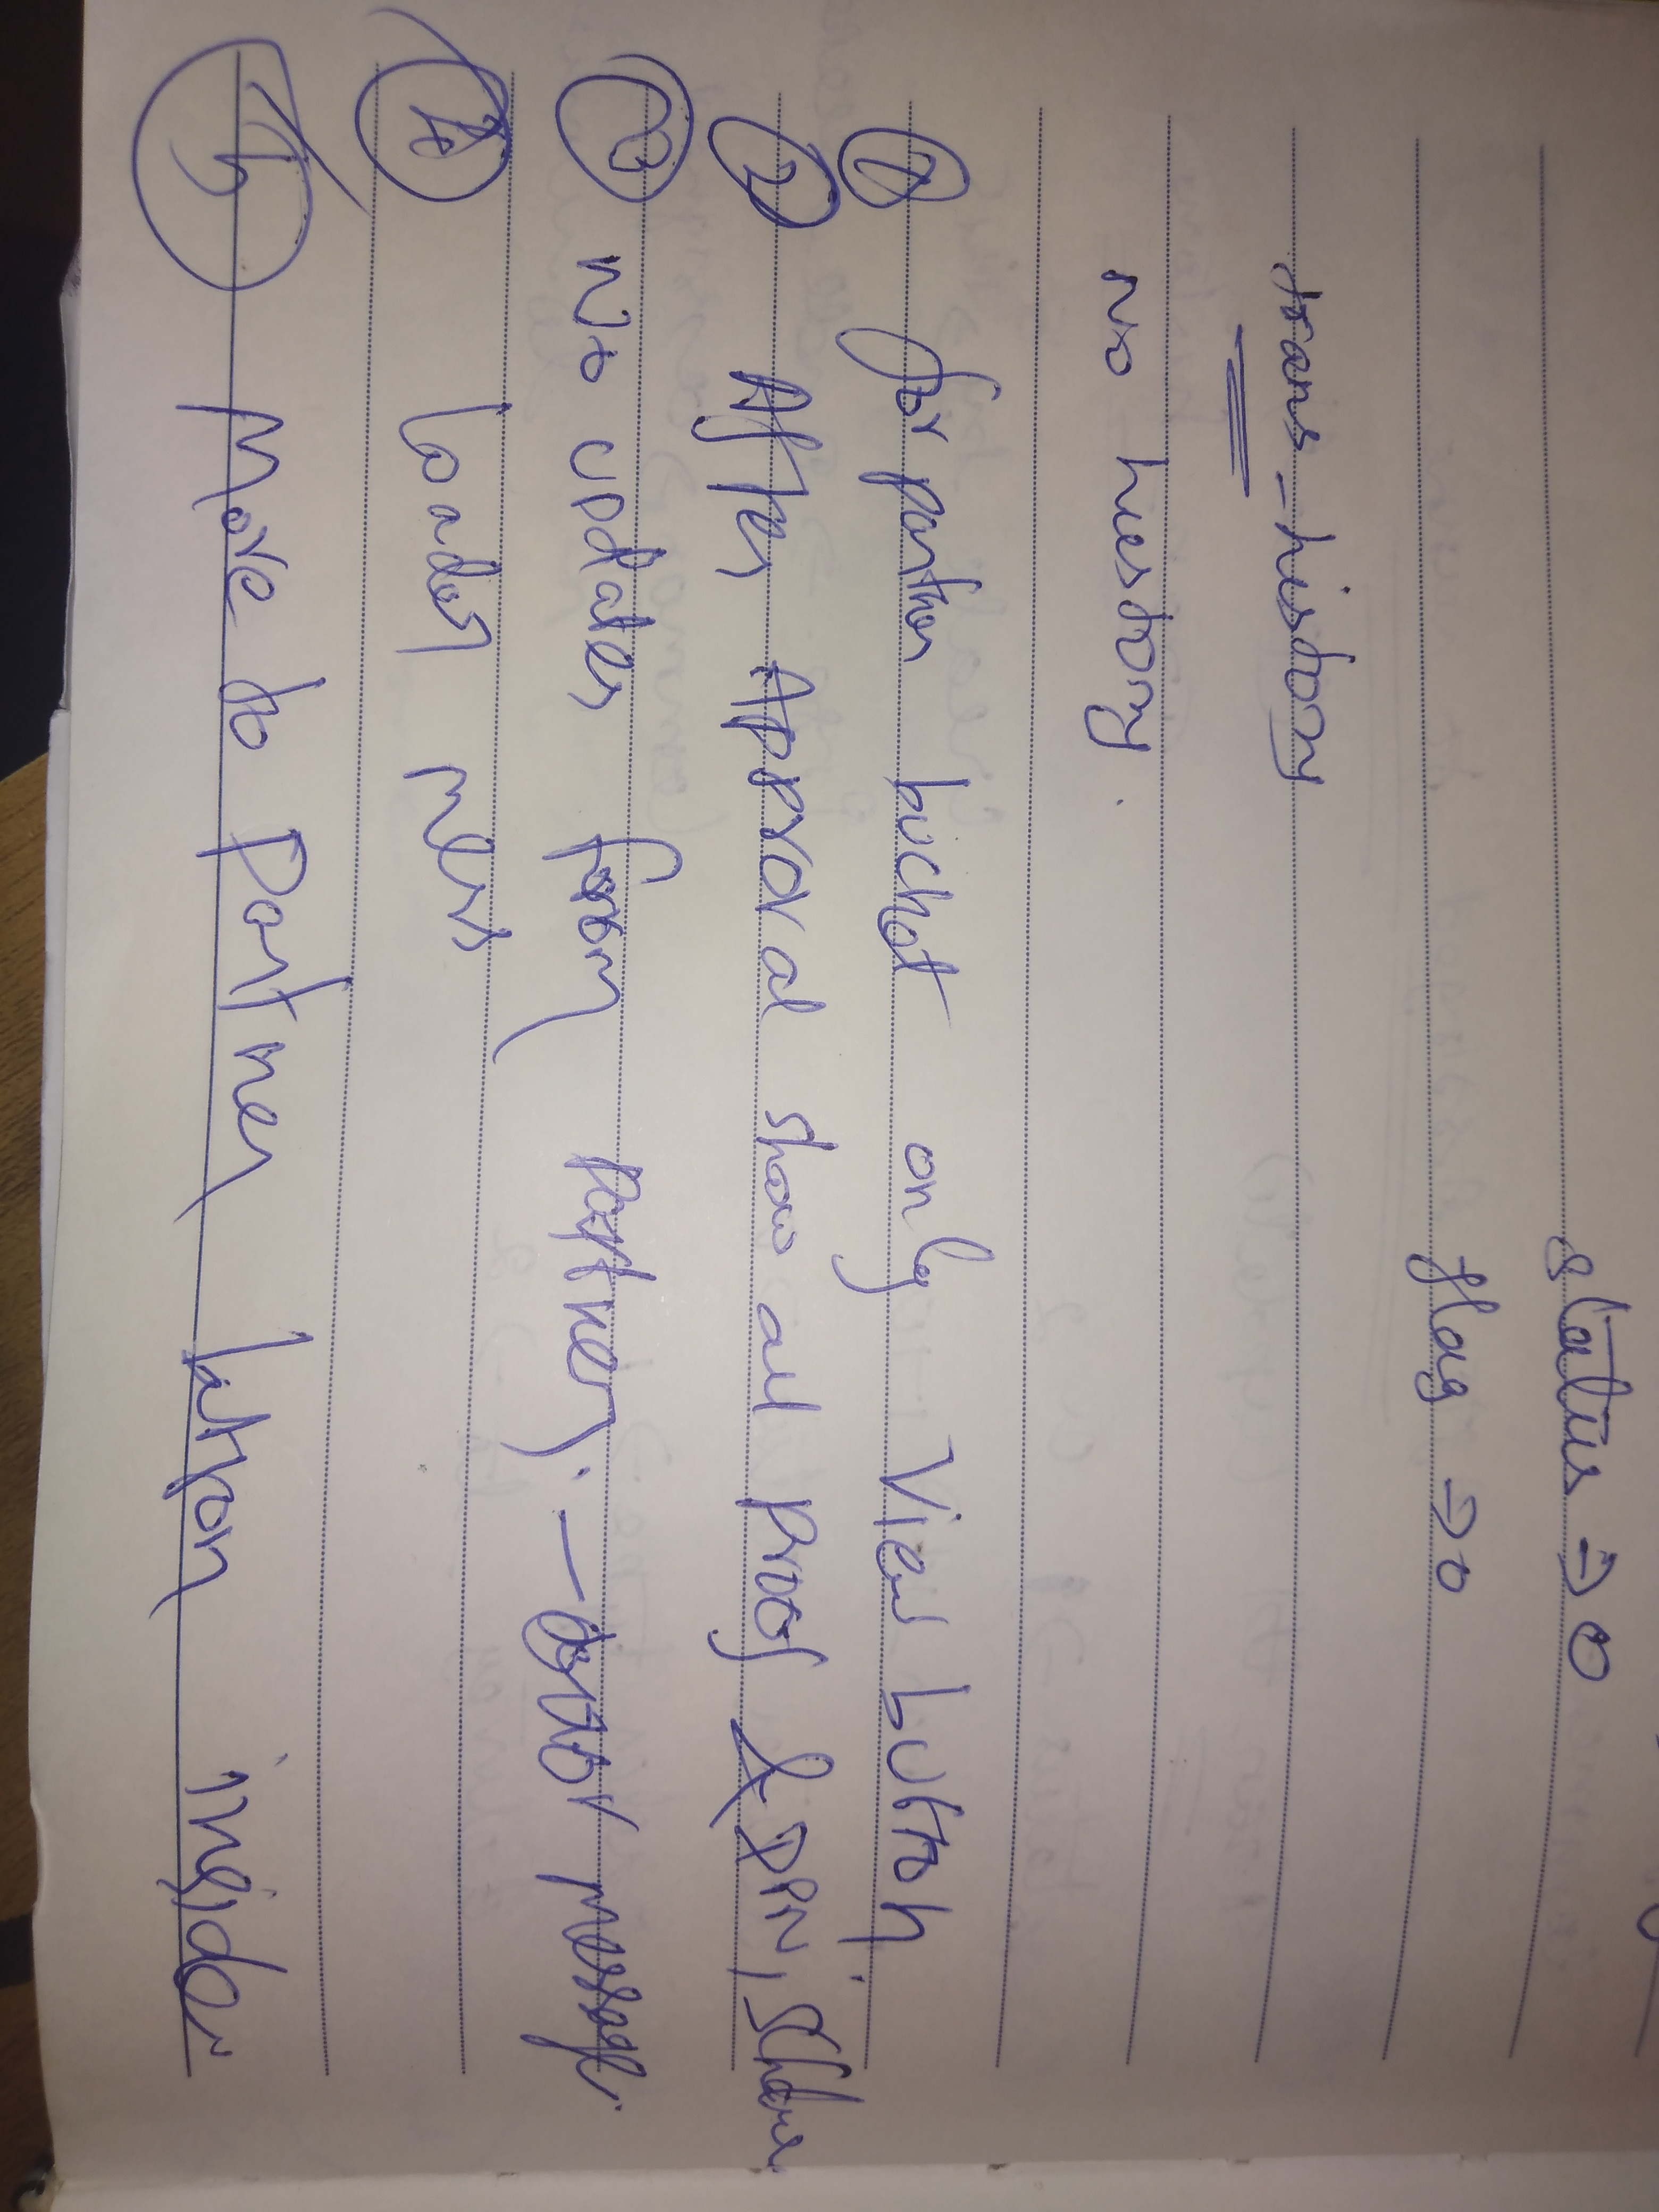 status => 0
flag => 0
trans_history
No history.
1 for partner bucket only View button.
2 After Approval show all Proof & DPN,
3 No updates from Partner. - error message.
4 loader mess
5 More to Partner button inside